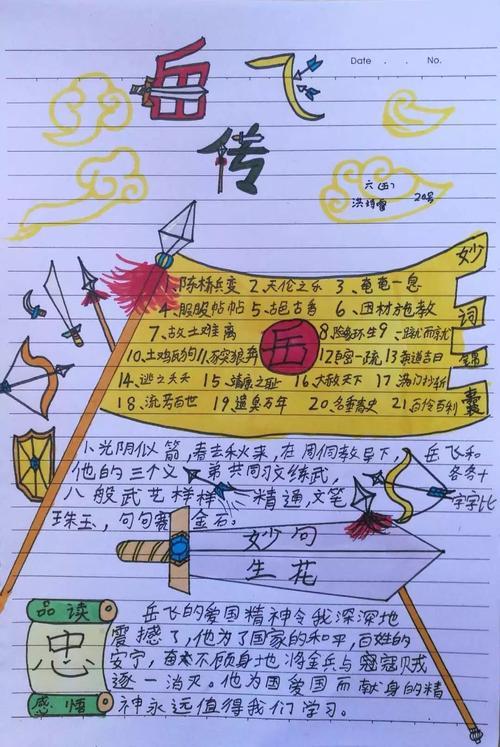 岳飞
Date . . No.
传
六(五)
洪 20号
妙词锦囊
1、陈桥兵变 2、天伦之乐 3、奄奄一息
4、服服帖帖 5、古色古香 6、因材施教
7、故土难离 8、险象环生 9、
岳
10、土鸡瓦狗 11、豕突狼奔 12、百密一疏 13、黄道吉日
14、逃之夭夭 15、靖康之耻 16、大赦天下 17、满门抄斩
18、流芳百世 19、遗臭万年 20、名垂青史 21、百伶百利
光阴似箭,春去秋来,在周侗教导下,岳飞和
他的三个义弟共同习文练武,各各十
八般武艺样样精通,文笔字字比
珠玉,句句赛金石。
妙句
生花
品读
忠
感悟
岳飞的爱国精神令我深深地
震撼了,他为了国家的和平,百姓的
安宁,奋不顾身地将金兵与寇贼
逐一消灭。他为国爱国而献身的精
神永远值得我们学习。